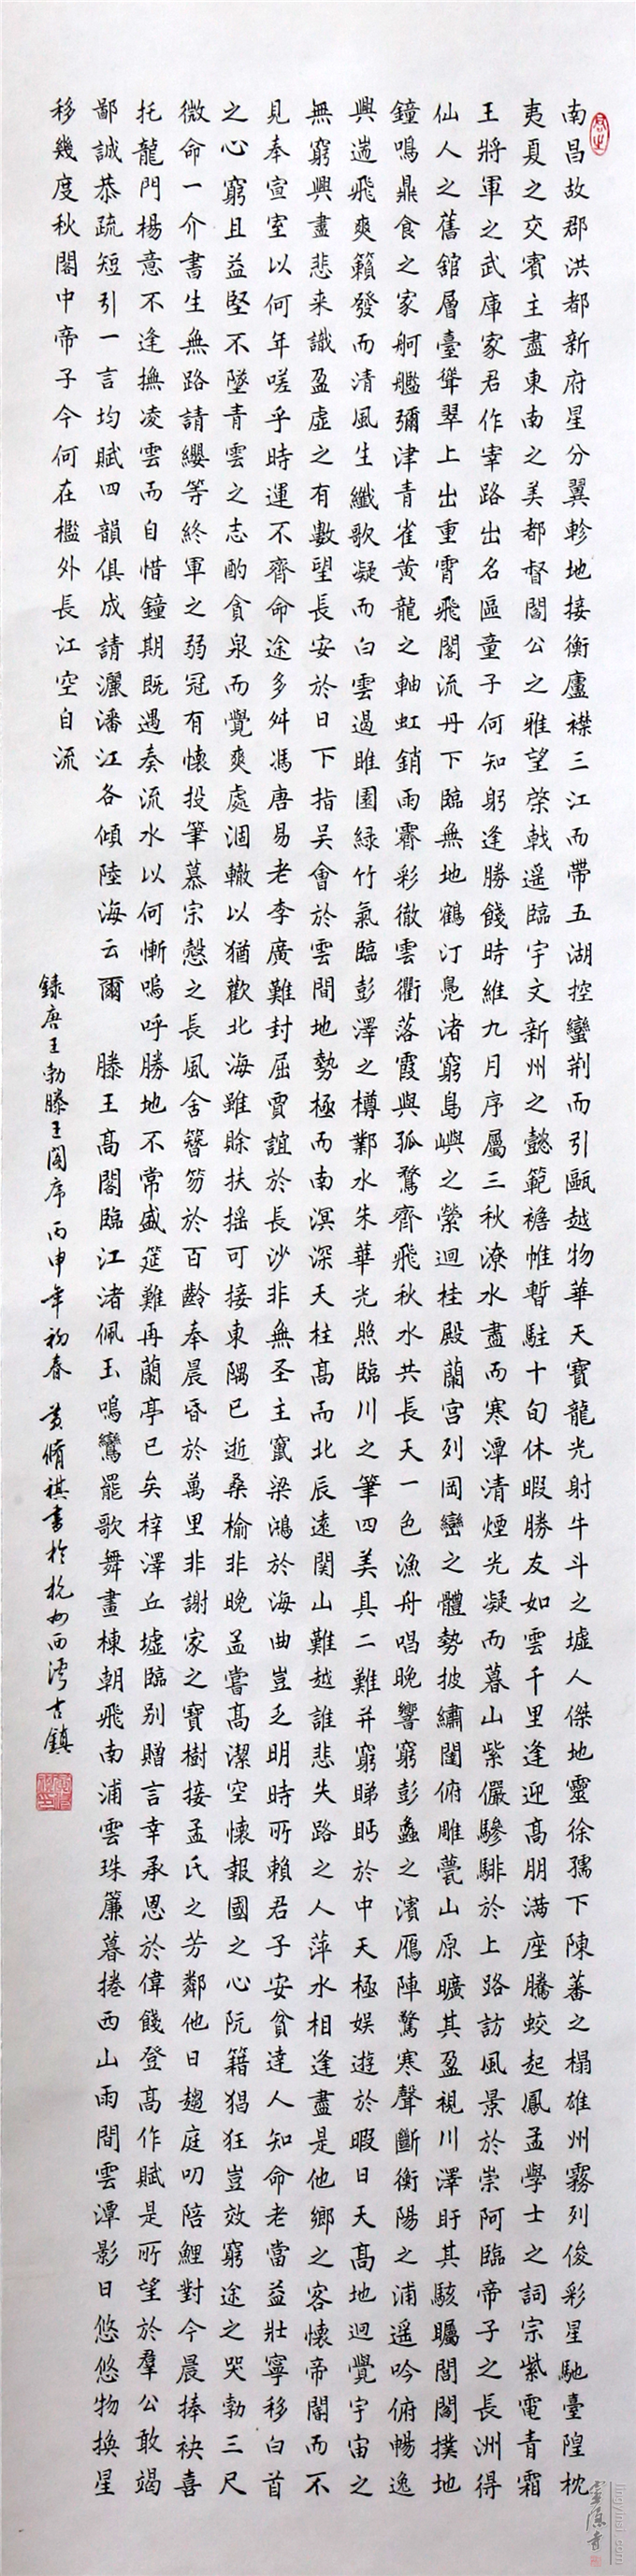 南昌故郡洪都新府星分翼軫地接衡廬襟三江而帶五湖控蠻荊而引甌越物華天寶龍光射牛斗之墟人傑地靈徐孺下陳蕃之榻雄州霧列俊彩星馳臺隍枕
夷夏之交賓主盡東南之美都督閻公之雅望棨戟遙臨宇文新州之懿範襜帷暫駐十旬休暇勝友如雲千里逢迎髙朋满座騰蛟起鳳孟學士之詞宗紫電青霜
王將軍之武庫家君作宰路出名區童子何知躬逢勝餞時維九月序屬三秋潦水盡而寒潭清煙光凝而暮山紫儼驂騑於上路訪風景於崇阿臨帝子之長洲得
仙人之舊舘層臺聳翠上出重霄飛閣流丹下臨無地鶴汀鳧渚窮島嶼之縈迴桂殿蘭宮列岡巒之體勢披繡闥俯雕甍山原曠其盈視川澤盱其駭矚閭閻撲地
鐘鳴鼎食之家舸艦彌津青雀黃龍之軸虹銷雨霽彩徹雲衢落霞與孤鶩齊飛秋水共長天一色漁舟唱晚響窮彭蠡之濱雁陣驚寒聲斷衡陽之浦遙吟俯暢逸
興遄飛爽籟發而清風生纖歌凝而白雲遏睢園綠竹氣臨彭澤之樽鄴水朱華光照臨川之筆四美具二難并窮睇眄於中天極娱遊於暇日天髙地迴覺宇宙之
無窮興盡悲来識盈虛之有數望長安於日下指吴會於雲間地勢極而南溟深天柱髙而北辰遠関山難越誰悲失路之人萍水相逢盡是他鄉之客懷帝閽而不
見奉宣室以何年嗟乎時運不齊命途多舛馮唐易老李廣難封屈賈誼於長沙非無圣主竄梁鴻於海曲豈乏明時所賴君子安貧達人知命老當益壯寧移白首
之心窮且益堅不墜青雲之志酌貪泉而覺爽處涸轍以猶歡北海雖賒扶摇可接東隅已逝桑榆非晚孟嘗髙潔空懷報國之心阮籍猖狂豈效窮途之哭勃三尺
微命一介書生無路請纓等終軍之弱冠有懷投筆慕宗慤之長風舍簪笏於百齡奉晨昏於萬里非謝家之寶樹接孟氏之芳鄰他日趨庭叨陪鯉對今晨捧袂喜
托龍門楊意不逢撫凌雲而自惜鐘期既遇奏流水以何慚嗚呼勝地不常盛筵難再蘭亭已矣梓澤丘墟臨别贈言幸承恩於偉餞登髙作賦是所望於羣公敢竭
鄙誠恭疏短引一言均賦四韻俱成請灑潘江各傾陸海云爾 滕王髙閣臨江渚佩玉鳴鸞罷歌舞畫棟朝飛南浦雲珠簾暮捲西山雨間雲潭影日悠悠物换星
移幾度秋閣中帝子今何在檻外長江空自流
錄唐王勃滕王阁序 丙申年初春 黄脩祺書於杭州西溪古鎮
lingyinshi.com